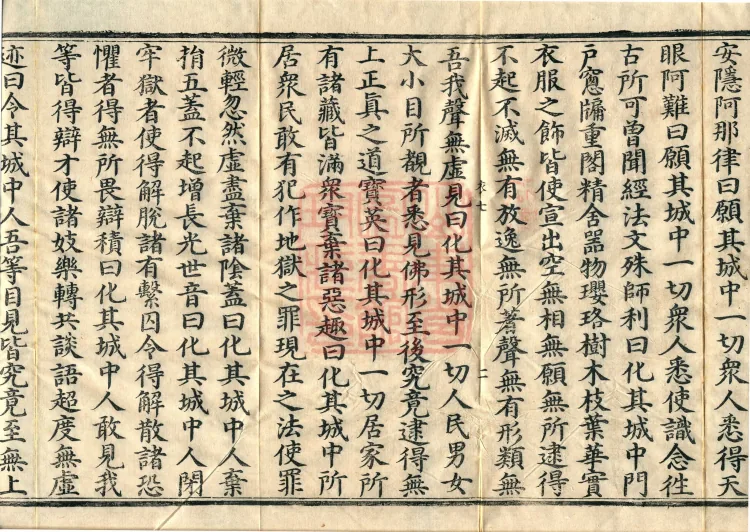 安隱阿那律曰願其城中一切衆人悉得天
眼阿難曰願其城中一切衆人悉使識念徃
古所可曾聞經法文殊師利曰化其城中門
戶窻牖重閣精舍器物瓔珞樹木枝葉華實
衣服之飾皆使宣出空無相無願無所逮得
不起不滅無有放逸無所著聲無有形類無
衣七
二
吾我聲無虛見曰化其城中一切人民男女
大小目所覩者悉見佛形至後究竟逮得無
上正眞之道寶英曰化其城中一切居家所
有諸藏皆滿衆寶棄諸惡趣曰化其城中所
居衆民敢有犯作地獄之罪現在之法使罪
微輕忽然虛盡棄諸陰蓋曰化其城中人棄
捐五蓋不起增長光世音曰化其城中人閉
牢獄者使得解脫諸有繫囚令得解散諸恐
懼者得無所畏辯積曰化其城中人敢見我
等皆得辯才使諸妓樂轉共談語超度無虛
迹曰令其城中人吾等目見皆究竟至無上